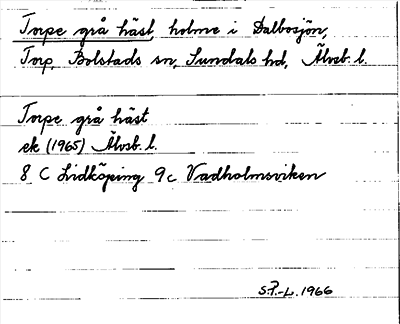 Torpe grå häst, holme i Dalbosjön,
Torp, Bolstads sn, Sundals hd, Älvsb. l.
Torpe grå häst
ek (1965) Älvsb. l.
8 C Lidköping 9c Vadholmsviken
S.P.-L. 1966